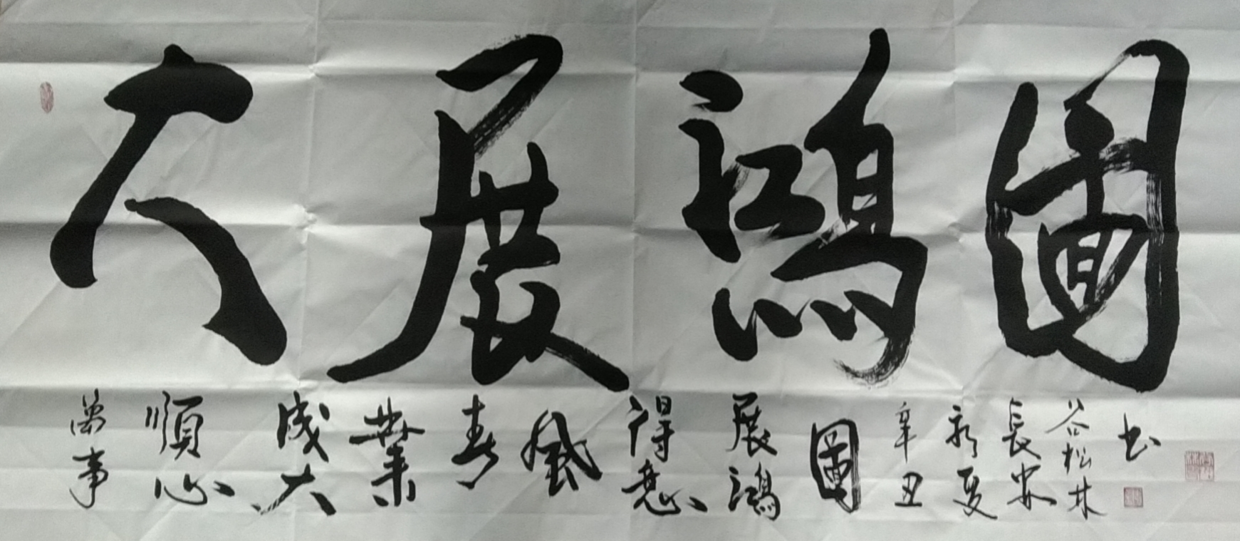 大展鴻圖
萬事
順心
成大
業
春
風
得意
展鴻
圖
辛丑
夏
長安
谷松林
书